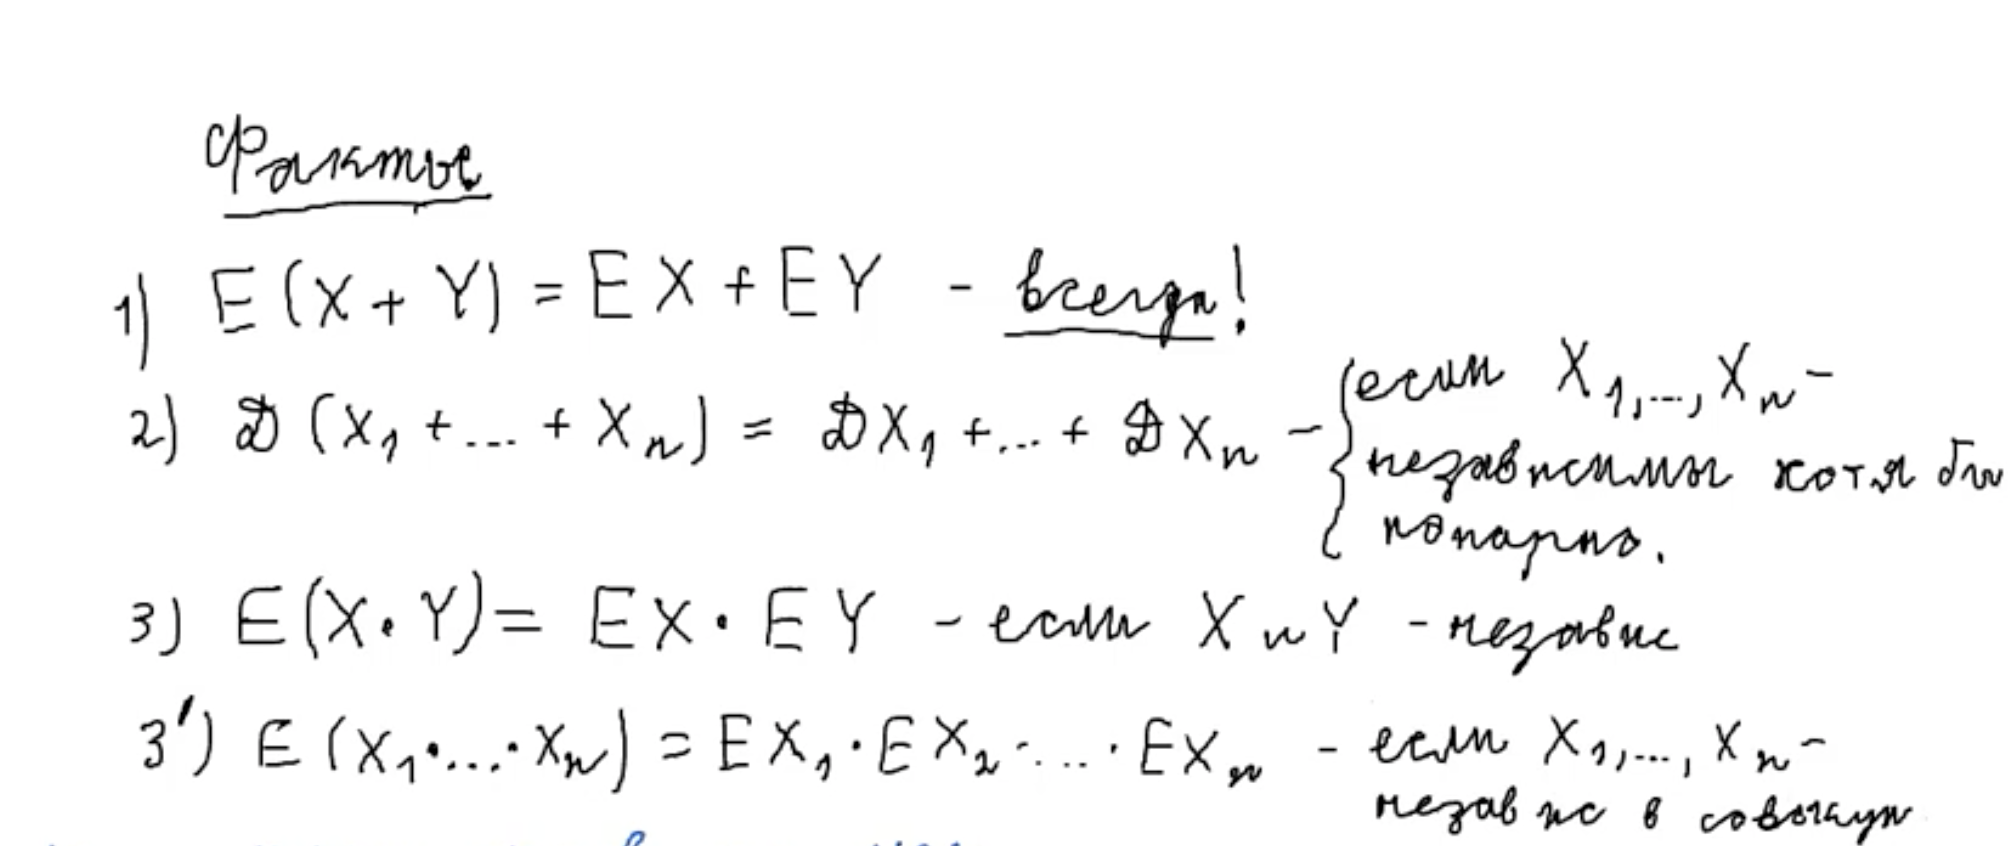 Факты
1) E(X + Y) = EX + EY - всегда!
2) D(X₁ + ... + Xₙ) = DX₁ + ... + DXₙ - { если X₁, ..., Xₙ -
независимы хотя бы
попарно.
3) E(X · Y) = EX · EY - если X и Y - независ
3') E(X₁ · ... · Xₙ) = EX₁ · EX₂ · ... · EXₙ - если X₁, ..., Xₙ -
независ в совокуп